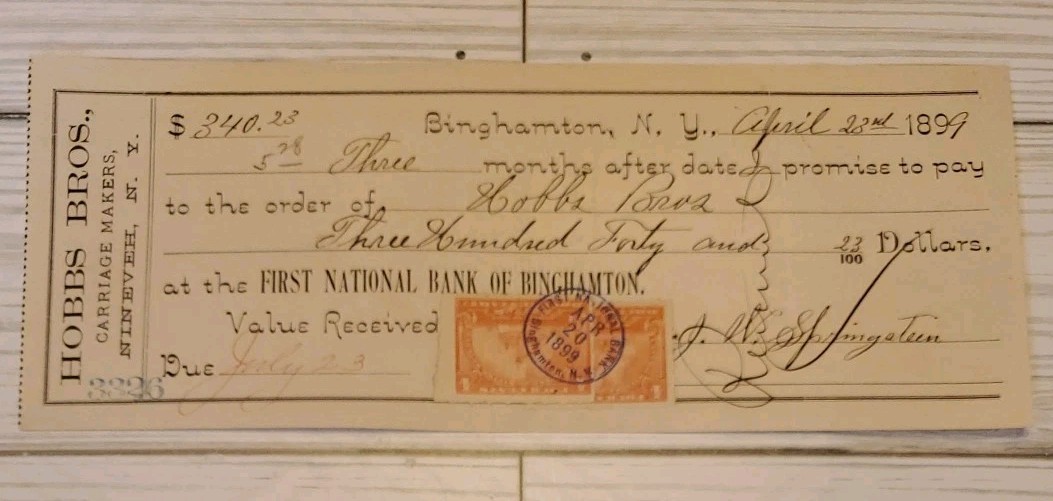 HOBBS BROS.,
CARRIAGE MAKERS,
NINEVEH, N. Y.
$ 340.23 Binghamton, N. Y., April 23rd 1899
5 28 Three months after date I promise to pay
to the order of Hobbs Bros
Three Hundred Forty and 23/100 Dollars.
at the FIRST NATIONAL BANK OF BINGHAMTON.
Value Received
J. W. Springstein
Due July 23
3326
FIRST NATIONAL BANK
APR
20
1899
Binghamton, N.Y.